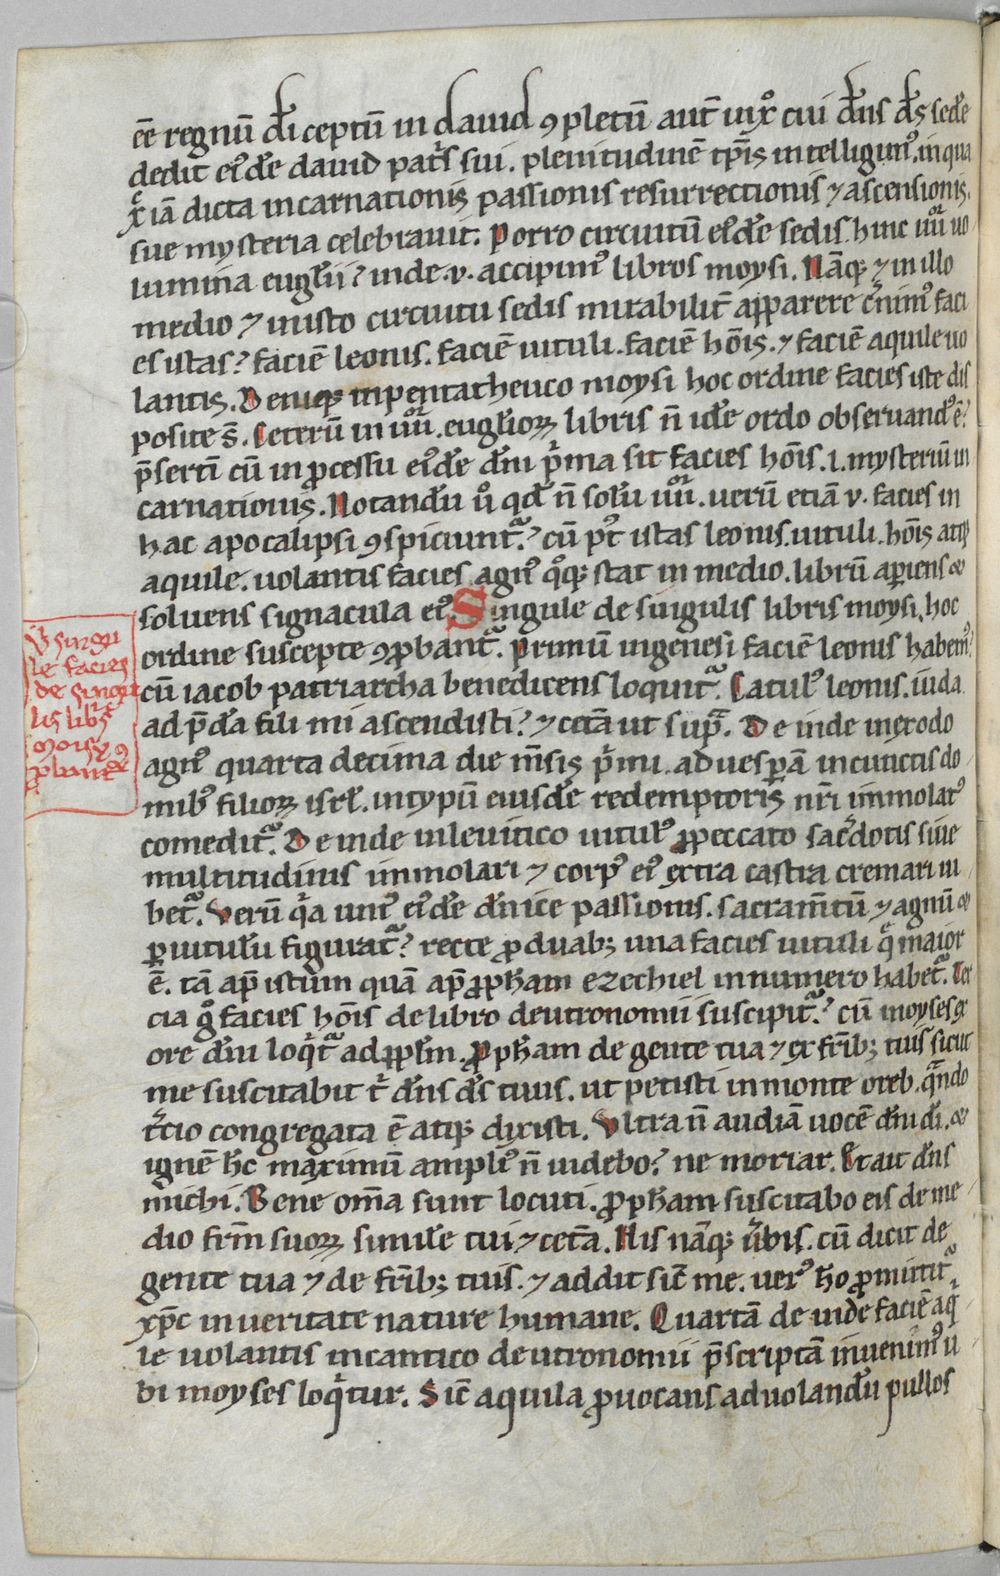 ee̅ regnu̅ d̅i ceptu̅ in dauid ꝯpletu̅ aut̅ in xp̅o cui dn̅s d̅s sede̅
dedit eiꝰde̅ dauid patͥs sui. plenitudine̅ tp̅is intelligimꝰ. in qua
xͥ ia̅ dicta incarnationis passionis resurrectionis ⁊ ascensionis
sue mysteria celebrauit. Porro circuitu̅ eiꝰde̅ sedis. hinc iiiior uo
lumina eugl̅ii? inde .v. accipimꝰ libros moysi. Na̅qꝫ ⁊ in illo
medio ⁊ in isto circuitu sedis mirabilit̅ apparere cͥnimꝰ faci
es istas? facie̅ leonis. facie̅ uituli. facie̅ ho̅is. ⁊ facie̅ aquile uo
lantis. Deniqꝫ in pentatheuco moysi hoc ordine facies iste dis
posite s̅. Ceteru̅ in iiiior. eugl̅ioꝝ libris n̅ ide̅ ordo obseruandꝰ e̅?
p̅serti̅ cu̅ in ꝓcessu eiꝰde̅ dn̅i pͥma sit facies ho̅is .i. mysteriu̅ in
carnationis. Notandu̅ uͦ qd̅ n̅ solu̅ iiiior. ueru̅ etia̅ .v. facies in
hac apocalipsi ꝯspiciunt᷑? cu̅ p̅t istas leonis. uituli. ho̅is atqꝫ
aquile. uolantis facies agnꝰ qͦqꝫ stat in medio. libru̅ aꝑiens &
soluens signacula eiꝰ. Singule de singulis libris moysi. hoc
ordine suscepte ꝯꝓbant᷑. Primu̅ in genesi facie̅ leonis habemꝰ?
cu̅ iacob patriarcha benedicens loquit᷑. Catulꝰ leonis. iuda
ad p̅da̅ fili mi ascendisti? ⁊ ceta̅ ut supͣ. De inde in exodo
agnꝰ quarta decima die m̅sis pͥmi. ad uesꝑa̅ in cunctis do
mibꝰ filioꝝ isrl̅. in typu̅ eiusde̅ redemptoris nr̅i immolatꝰ
comedit᷑. De inde in leuitico uitulꝰ ꝓ peccato sac̅dotis siue
multitudinis immolari ⁊ corpꝰ eiꝰ extra castra cremari iu
bet᷑. Veru̅ qͥa unꝰ eiꝰde̅ dn̅ice passionis. sacram̅tu̅ ⁊ agnu̅ &
ꝑ uitulu̅ figurat᷑? recte ꝓ duabꝫ una facies uituli qͥ maior
e̅. ta̅ ap̅ istum qua̅ ap̅ ꝓph̅am ezechiel in numero habet᷑. Ter
cia gͦ facies ho̅is de libro deutronomii suscipit᷑? cu̅ moyses ex
ore dn̅i loqͥt᷑ ad ppl̅m. Ꝓph̅am de gente tua ⁊ ex fr̅ibꝫ tuis sicut
me suscitabit tͥ dn̅s d̅s tuus. ut petisti in monte oreb. qͣndo
c̅cio congregata e̅ atqꝫ dixisti. Vltra n̅ audia̅ uoce̅ dn̅i d̅i. &
igne̅ hc̅ maximu̅ ampliꝰ n̅ uidebo? ne moriar. Et ait dn̅s
michi. Bene om̅a sunt locuti. ꝓph̅am suscitabo eis de me
dio fr̅m suoꝝ simile̅ tui ⁊ ceta̅. His na̅qꝫ ůbis. cu̅ dicit de
gente tua ⁊ de fr̅ibꝫ tuis. ⁊ addit sic̅ me. uerꝰ ho ꝓmittit᷑
xp̅c in ueritate nature humane. Quarta̅ de inde facie̅ aqͥ
le uolantis in cantico deutronomii p̅scripta̅ inuenimꝰ u
bi moyses loqͥtur. Sic̅ aquila ꝓuocans ad uolandu̅ pullos
Vͥ singu
le facies
de singu
lis libͥs
moisi ꝯ
ꝓbant᷑